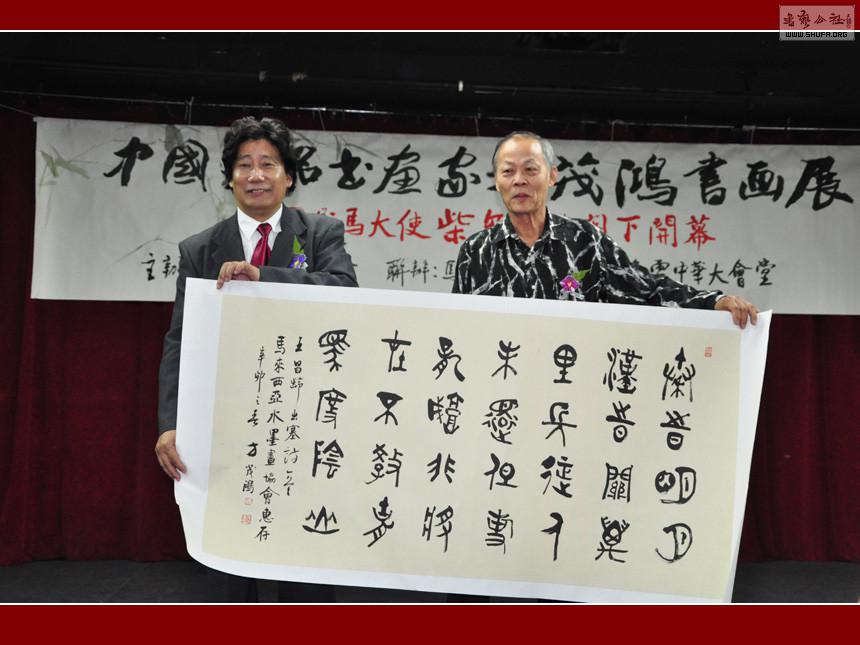 WWW.SHUFA.ORG
中國 書画家 茂鴻書画展
馬大使柴 下開幕
主辦 聯辦： 中華大會堂
秦旹明月
漢旹關萬
里長征人
未還但使
龍城非將
在不教胡
馬度陰山
王昌齡出塞詩一首
馬來西亞水墨畫協會惠存
辛卯之春 方茂鴻